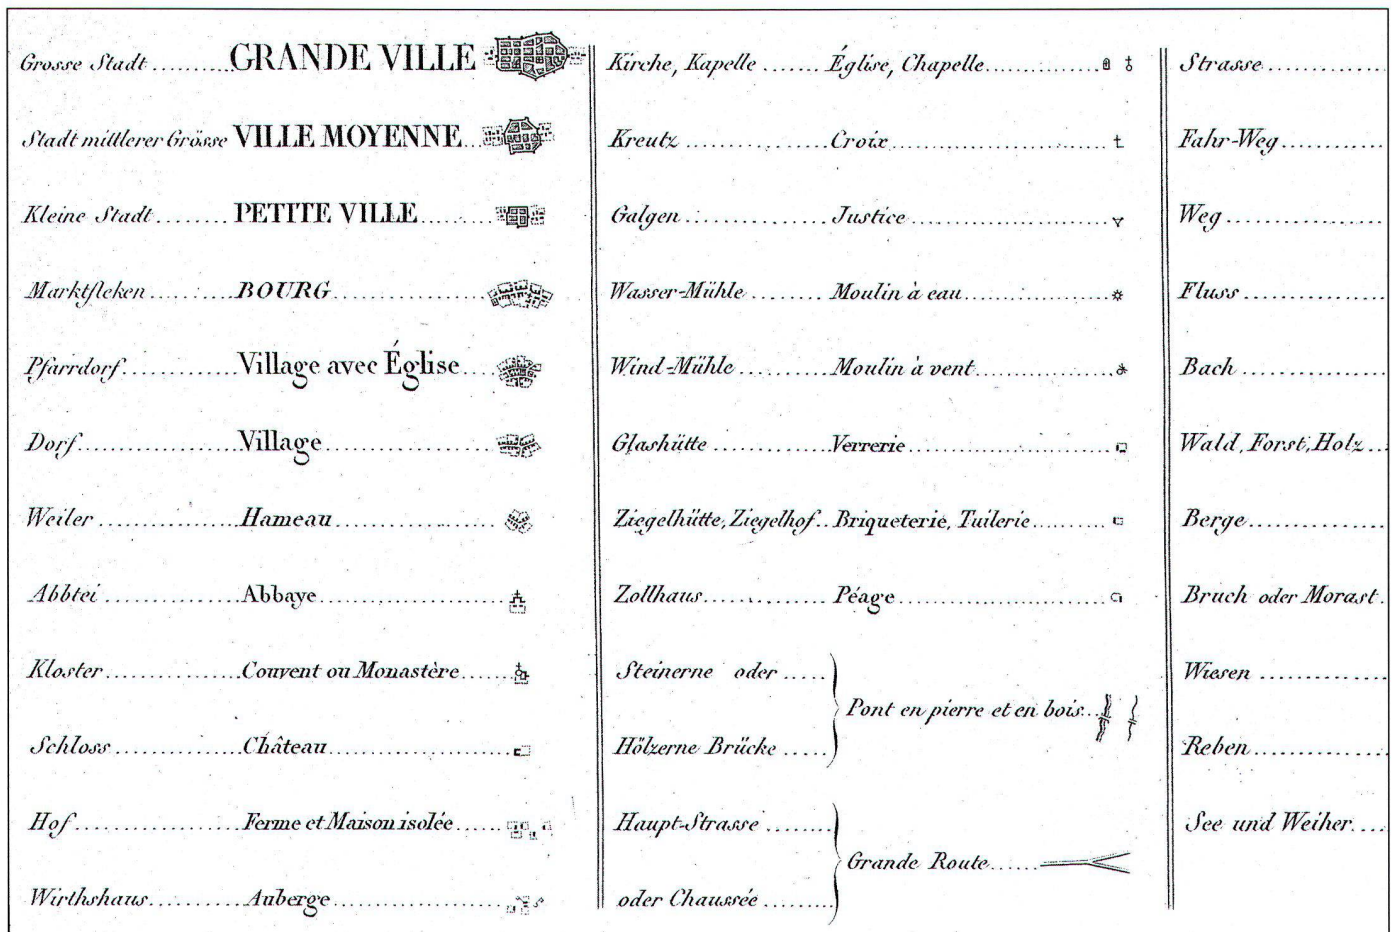 Grosse Stadt..........GRANDE VILLE
Stadt mittlerer Grösse VILLE MOYENNE...
Kleine Stadt........PETITE VILLE......
Marktfleken.........BOURG.................
Pfarrdorf............Village avec Église....
Dorf...................Village.....................
Weiler................Hameau....................
Abbtei................Abbaye.....................
Kloster...............Couvent ou Monastère.....
Schloss..............Château....................
Hof....................Ferme et Maison isolée.....
Wirthshaus..........Auberge....................
Kirche, Kapelle......Église, Chapelle..............
Kreutz................Croix..........................
Galgen................Justice........................
Wasser-Mühle........Moulin à eau.................
Wind-Mühle..........Moulin à vent................
Glashütte.............Verrerie.......................
Ziegelhütte, Ziegelhof..Briqueterie, Tuilerie.........
Zollhaus..............Péage..........................
Steinerne oder.....
Pont en pierre et en bois...
Hölzerne Brücke.....
Haupt-Strasse.......
Grande Route......
oder Chaussée........
Strasse................
Fahr-Weg.............
Weg...................
Fluss..................
Bach..................
Wald, Forst, Holz...
Berge.................
Bruch oder Morast.
Wiesen...............
Reben.................
See und Weiher....